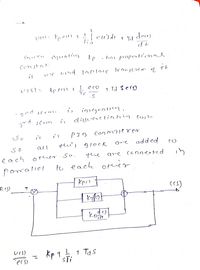 u(t) = Kp e(t) + 1/Ti ∫ e(t) dt + Td de(t)/dt
given equation kp - is proportional
constant
is we used laplace transform of it
u(s) = Kp e(s) + 1/Ti e(s)/s + Td s e(s)
2nd term is integration
3rd term is differentiation term
So is is PID controller
so all this block are added to
each other so the are connected in
parallel to each other
R(s) +
Kp
C(s)
u(s)/e(s) = Kp + 1/sTi + Tds